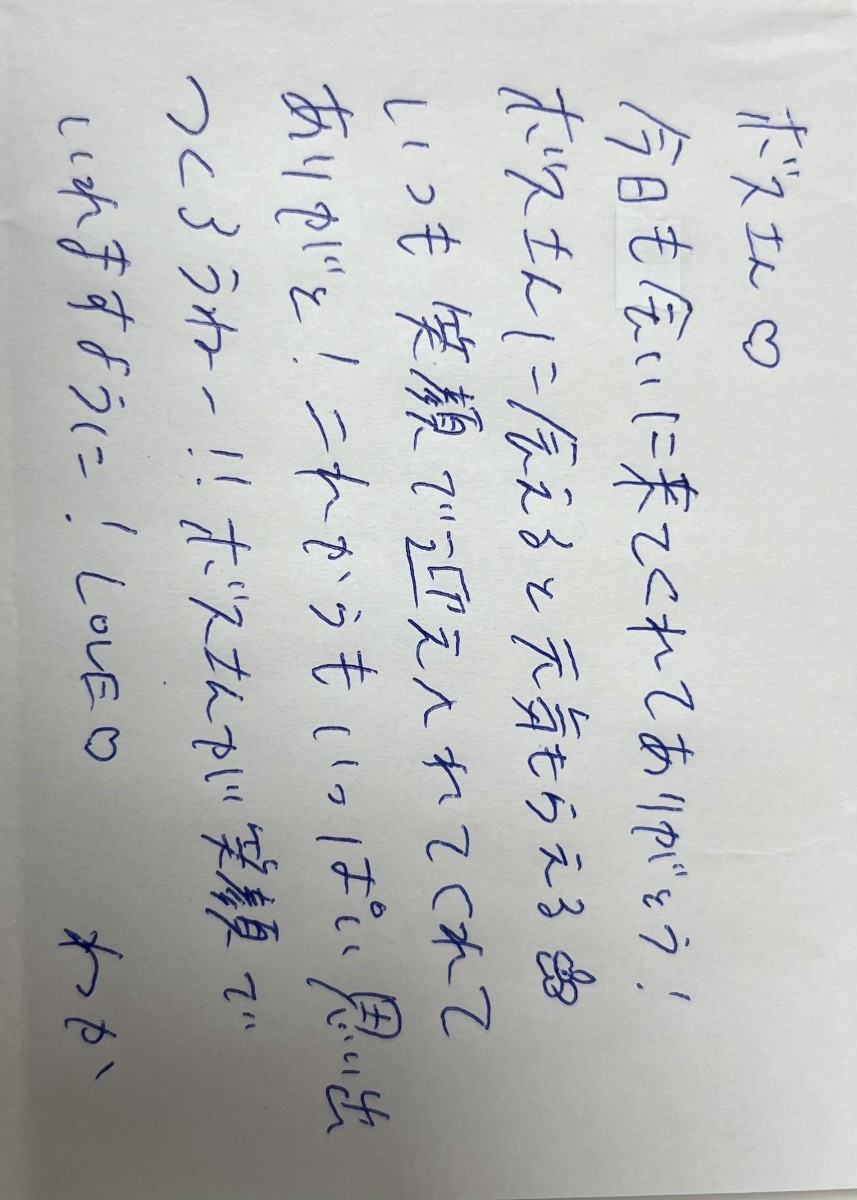 ボスさん♡
今日も会いに来てくれてありがとう!
ボスさんに会えると元気もらえる
いつも笑顔で迎え入れてくれて
ありがと!これからもいっぱい思い出
つくろうねー!!ボスさんが笑顔で
いれますように!LOVE♡ わか